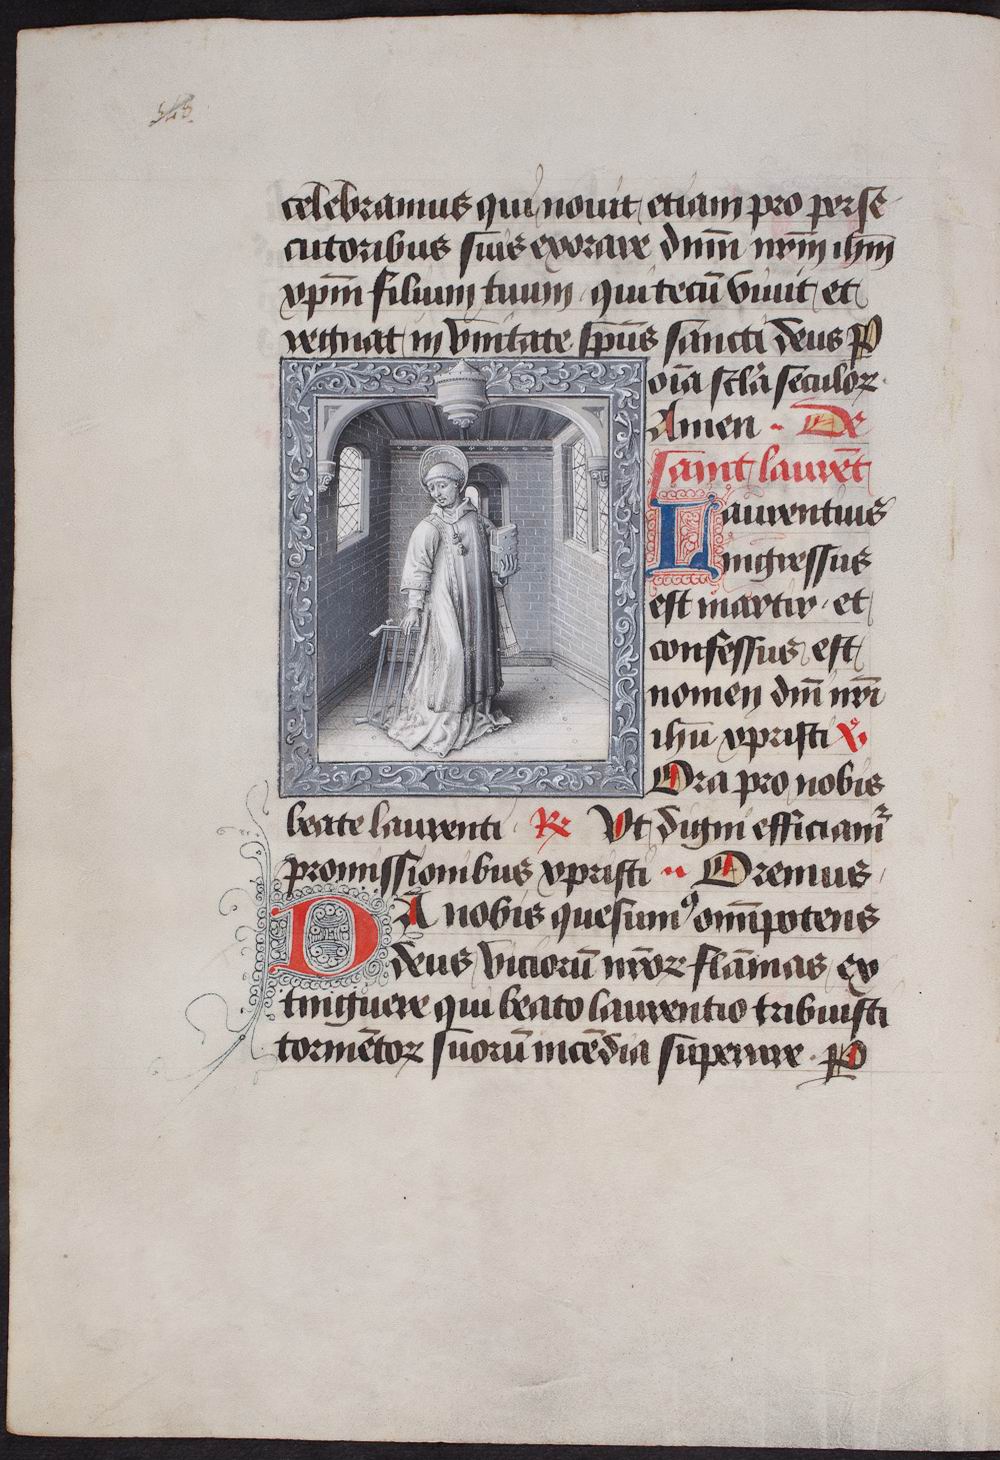 celebramus qui nouit etiam pro perse
cutoribus suis exorare dnm̄ nrm̄ ihm̄
xpm̄ filium tuum qui tecū viuit et
regnat in vnitate spūs sancti deus P
oīa scl̄a seculoꝝ
Amen De
sainct laurēt
Laurentius
ingressus
est martir et
confessus est
nomen dnī nr̄i
ihū xpristi ℣
Ora pro nobis
beate laurenti ℟ Vt digni efficiamr̄
promissionibus xpristi Oremus
DA nobis quesumꝰ omīpotens
deus viciorū nr̄oꝝ flāmas ex
tinguere qui beato laurentio tribuisti
tormētoꝝ suorū incēdia superare P